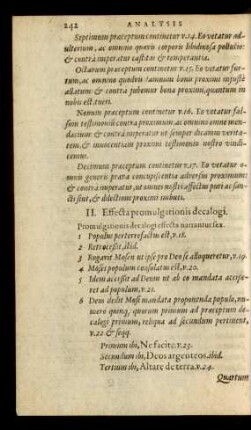 242 ANALYSIS
Septimum præceptum continetur v.14. Eo vetatur ad-
ulterium, ac omnino quævis corporis libidinosa pollutio:
& contrà imperatur castitas & temperantia.
Octavum præceptum continetur v.15. Eo vetatur fur-
tum, ac omnino quodvis damnum bonis proximi injustè
allatum: & contrà jubemur bona proximi, quantum in
nobis est, tueri.
Nonum præceptum continetur v.16. Eo vetatur fal-
sum testimonium contra proximum, ac omnino omne men-
dacium: & contrà imperatur ut semper dicamus verita-
tem, & innocentiam proximi testimonio nostro vindi-
cemus.
Decimum præceptum continetur v.17. Eo vetatur o-
mnis generis prava concupiscentia adversus proximum:
& contrà imperatur, ut omnes nostri affectus puri ac san-
cti sint, & dilectione proximi imbuti.
II. Effecta promulgationis decalogi.
Promulgationis decalogi effecta narrantur sex.
1 Populus perterrefactus est, v.18.
2 Retrocessit, ibid.
3 Rogavit Mosen ut ipse pro Deo se alloqueretur, v.19.
4 Moses populum consolatus est, v.20.
5 Idem accessit ad Deum ut ab eo mandata accipe-
ret ad populum, v.21.
6 Deus dedit Mosi mandata proponenda populo, nu-
mero quinq; quorum primum ad præceptum de-
calogi primum, reliqua ad secundum pertinent,
v.22 & seqq.
Primum ibi, Ne facite. v.23.
Secundum ibi, Deos argenteos. ibid.
Tertium ibi, Altare de terra. v.24.
Quartum